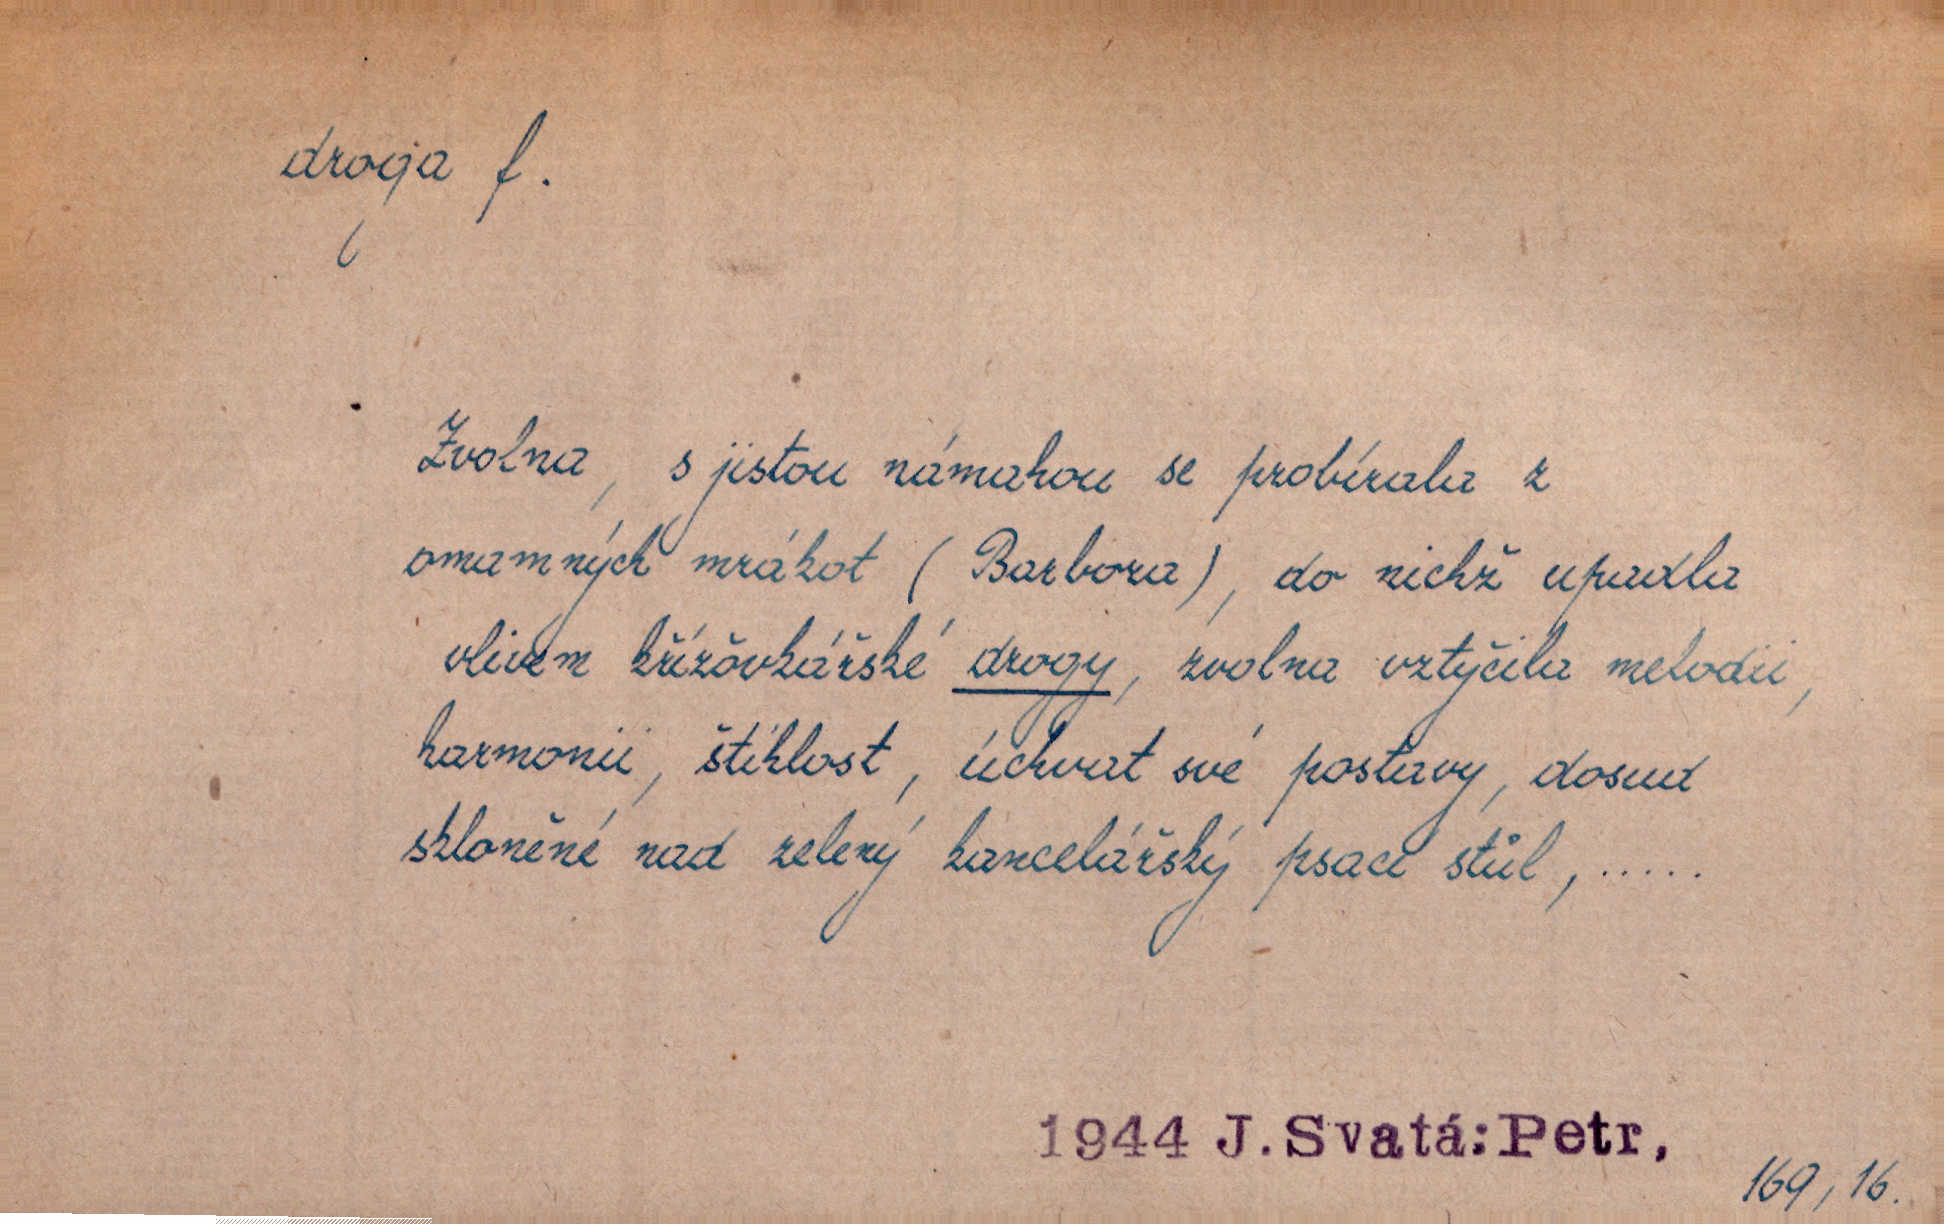 droga f.
Zvolna, s jistou námahou se probírala z
omamných mrákot (Barbora), do nichž upadla
vlivem křížovkářské drogy, zvolna vztyčila melodii,
harmonii, štíhlost, úchvat své postavy, dosud
skloněné nad zelený kancelářský psací stůl, .....
1944 J. Svatá: Petr,
169, 16.